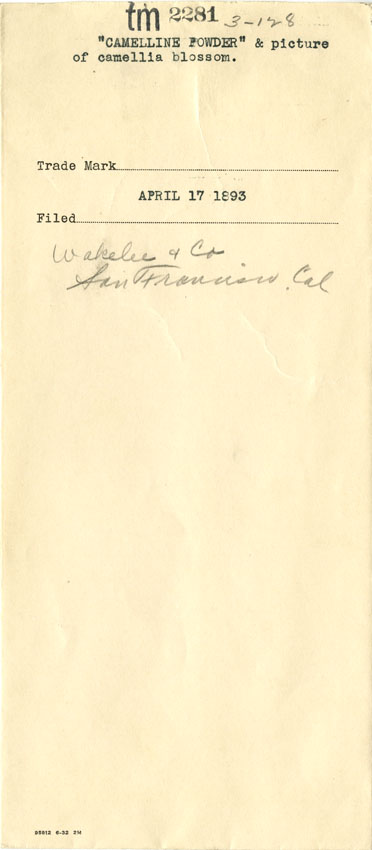 tm 2281 3-128
"CAMELLINE POWDER" & picture
of camellia blossom.
Trade Mark
APRIL 17 1893
Filed
Wakelee & Co
San Francisco, Cal
95812 6-32 2M